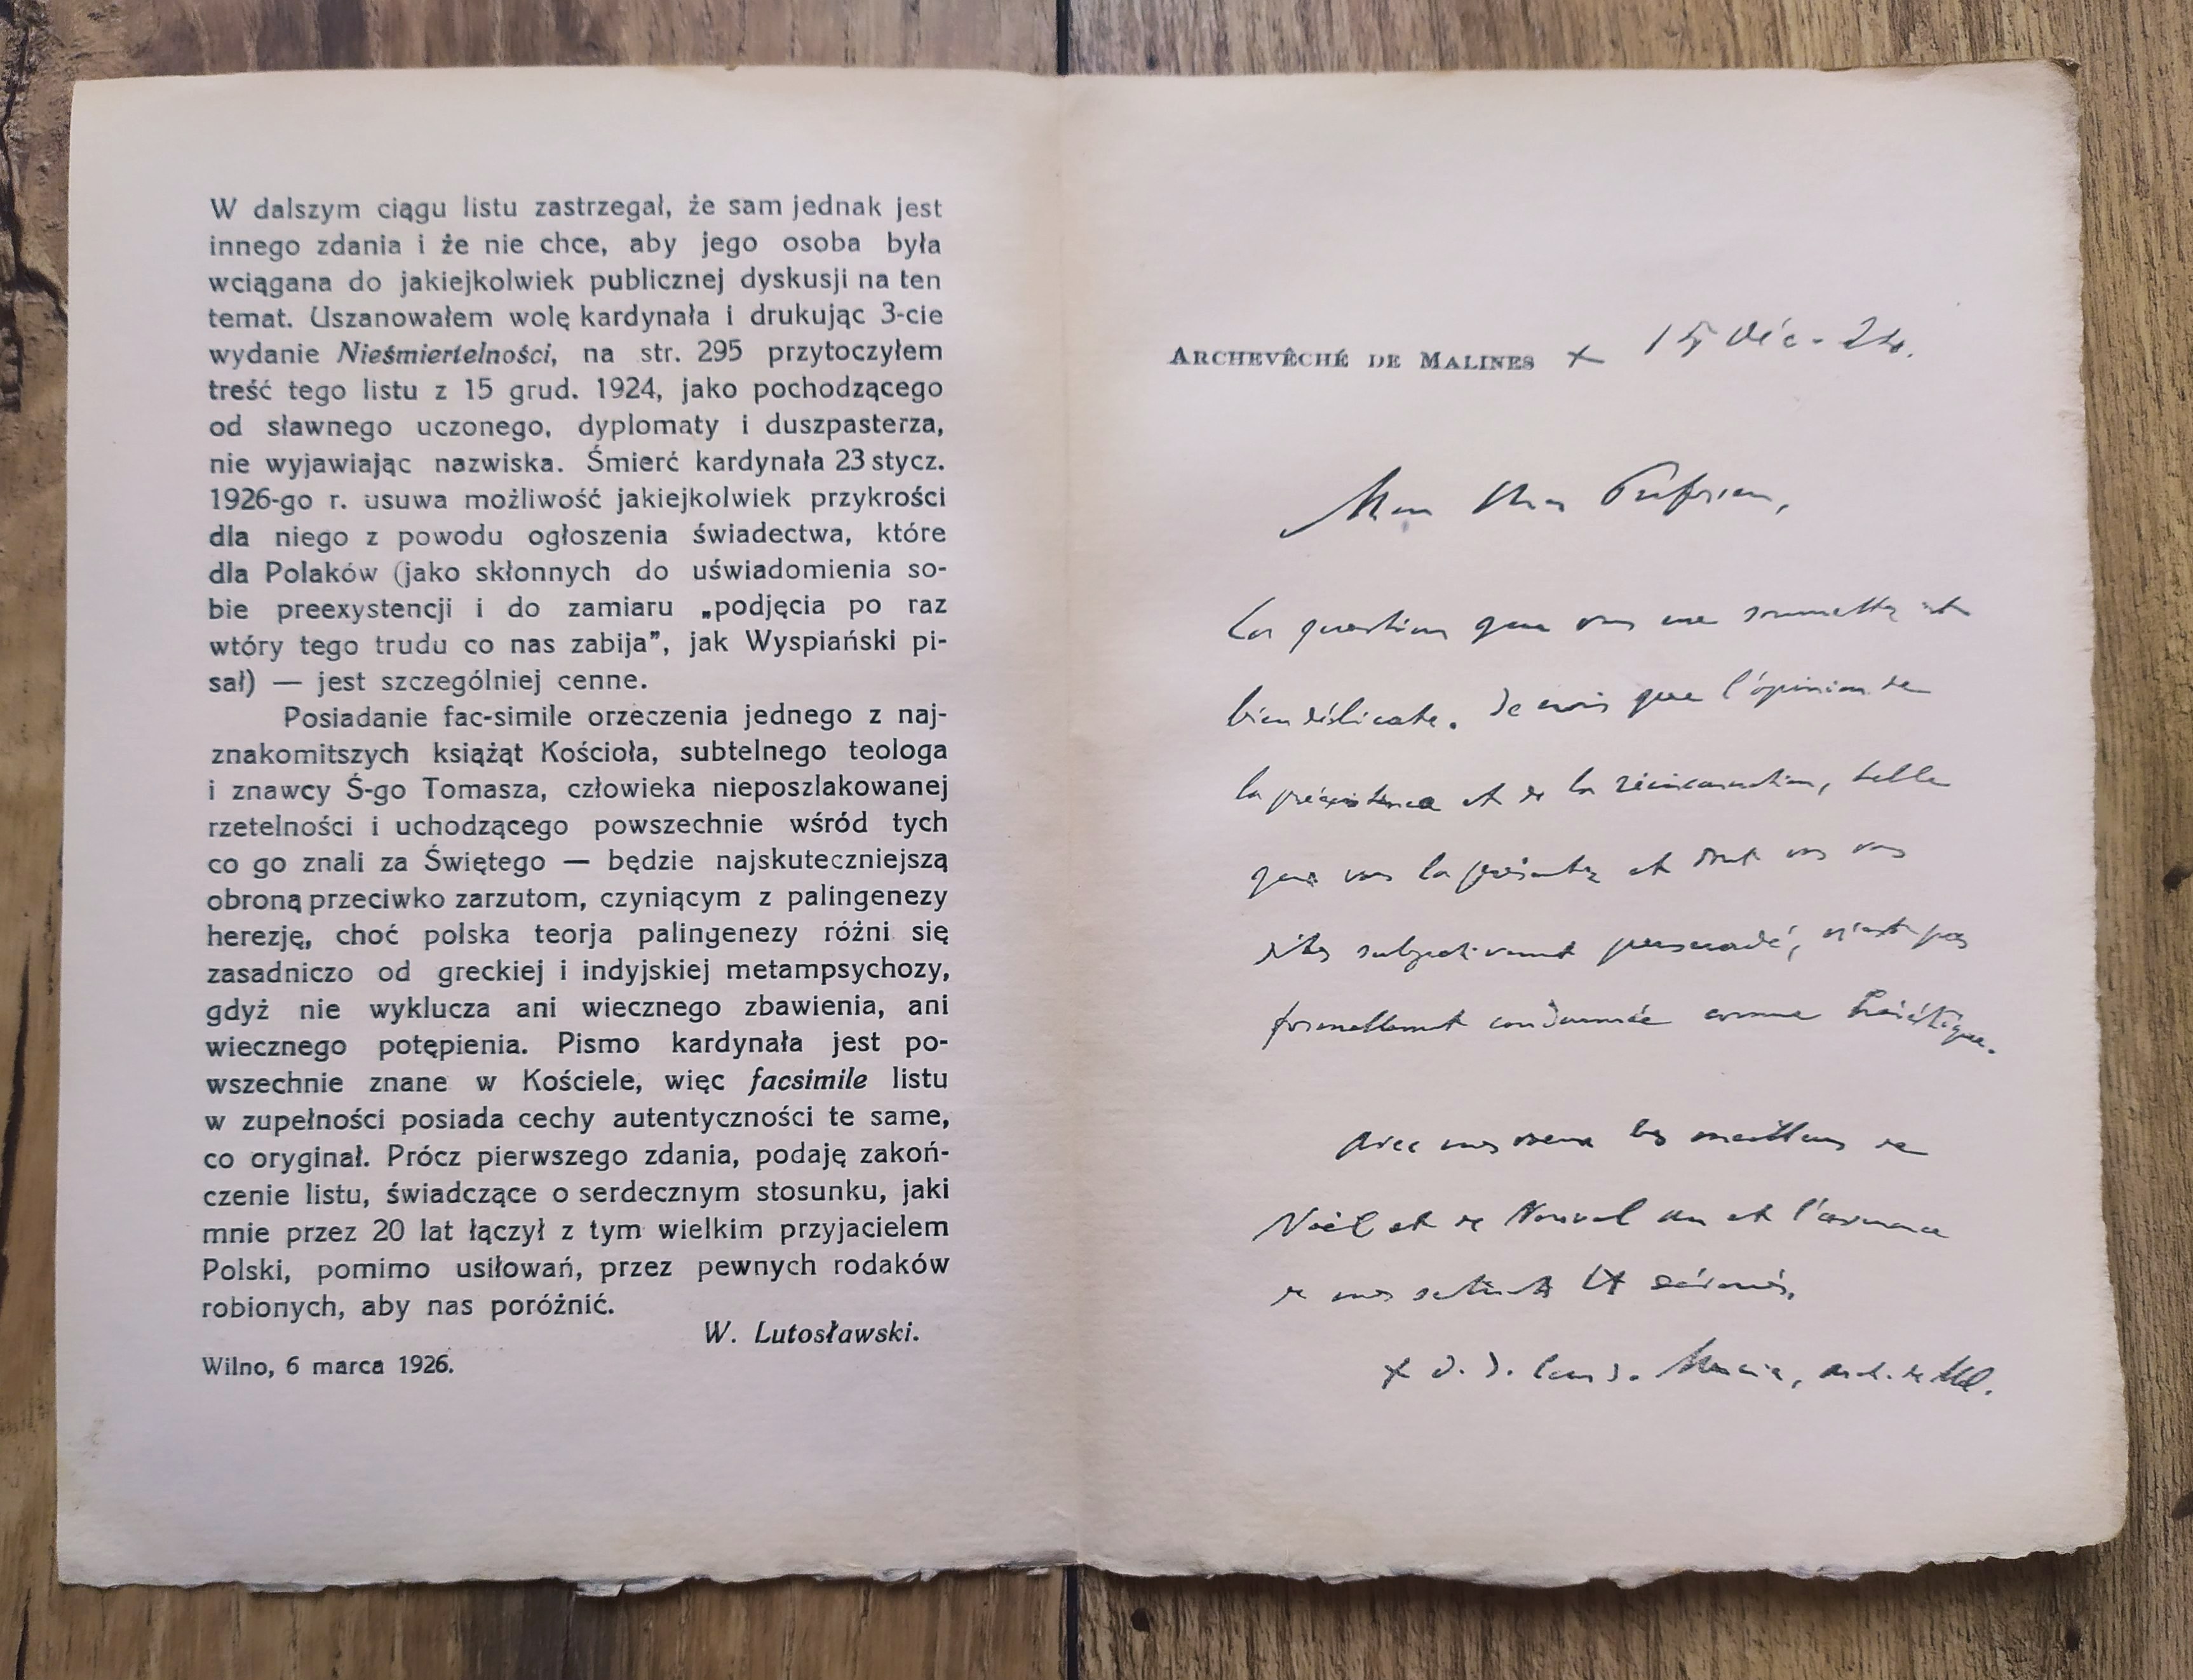 W dalszym ciągu listu zastrzegał, że sam jednak jest
innego zdania i że nie chce, aby jego osoba była
wciągana do jakiejkolwiek publicznej dyskusji na ten
temat. Uszanowałem wolę kardynała i drukując 3-cie
wydanie Nieśmiertelności, na str. 295 przytoczyłem
treść tego listu z 15 grud. 1924, jako pochodzącego
od sławnego uczonego, dyplomaty i duszpasterza,
nie wyjawiając nazwiska. Śmierć kardynała 23 stycz.
1926-go r. usuwa możliwość jakiejkolwiek przykrości
dla niego z powodu ogłoszenia świadectwa, które
dla Polaków (jako skłonnych do uświadomienia so-
bie preexystencji i do zamiaru „podjęcia po raz
wtóry tego trudu co nas zabija”, jak Wyspiański pi-
sał) — jest szczególniej cenne.
Posiadanie fac-simile orzeczenia jednego z naj-
znakomitszych książąt Kościoła, subtelnego teologa
i znawcy Ś-go Tomasza, człowieka nieposzlakowanej
rzetelności i uchodzącego powszechnie wśród tych
co go znali za Świętego — będzie najskuteczniejszą
obroną przeciwko zarzutom, czyniącym z palingenezy
herezję, choć polska teorja palingenezy różni się
zasadniczo od greckiej i indyjskiej metampsychozy,
gdyż nie wyklucza ani wiecznego zbawienia, ani
wiecznego potępienia. Pismo kardynała jest po-
wszechnie znane w Kościele, więc facsimile listu
w zupełności posiada cechy autentyczności te same,
co oryginał. Prócz pierwszego zdania, podaję zakoń-
czenie listu, świadczące o serdecznym stosunku, jaki
mnie przez 20 lat łączył z tym wielkim przyjacielem
Polski, pomimo usiłowań, przez pewnych rodaków
robionych, aby nas poróżnić.
W. Lutosławski.
Wilno, 6 marca 1926.
ARCHEVÊCHÉ DE MALINES + 15 Déc. 24.
Mon cher Professeur,
La question que vous me soumettez est
bien délicate. Je crois que l'opinion de
la préexistence et de la réincarnation, telle
que vous la présentez et dont vous vous
dites subjectivement persuadé, n'est pas
formellement condamnée comme hérétique.
Avec mes voeux les meilleurs de
Noël et de Nouvel an et l'assurance
de mes sentiments
+ D. J. Card. Mercier, arch. de Mal.